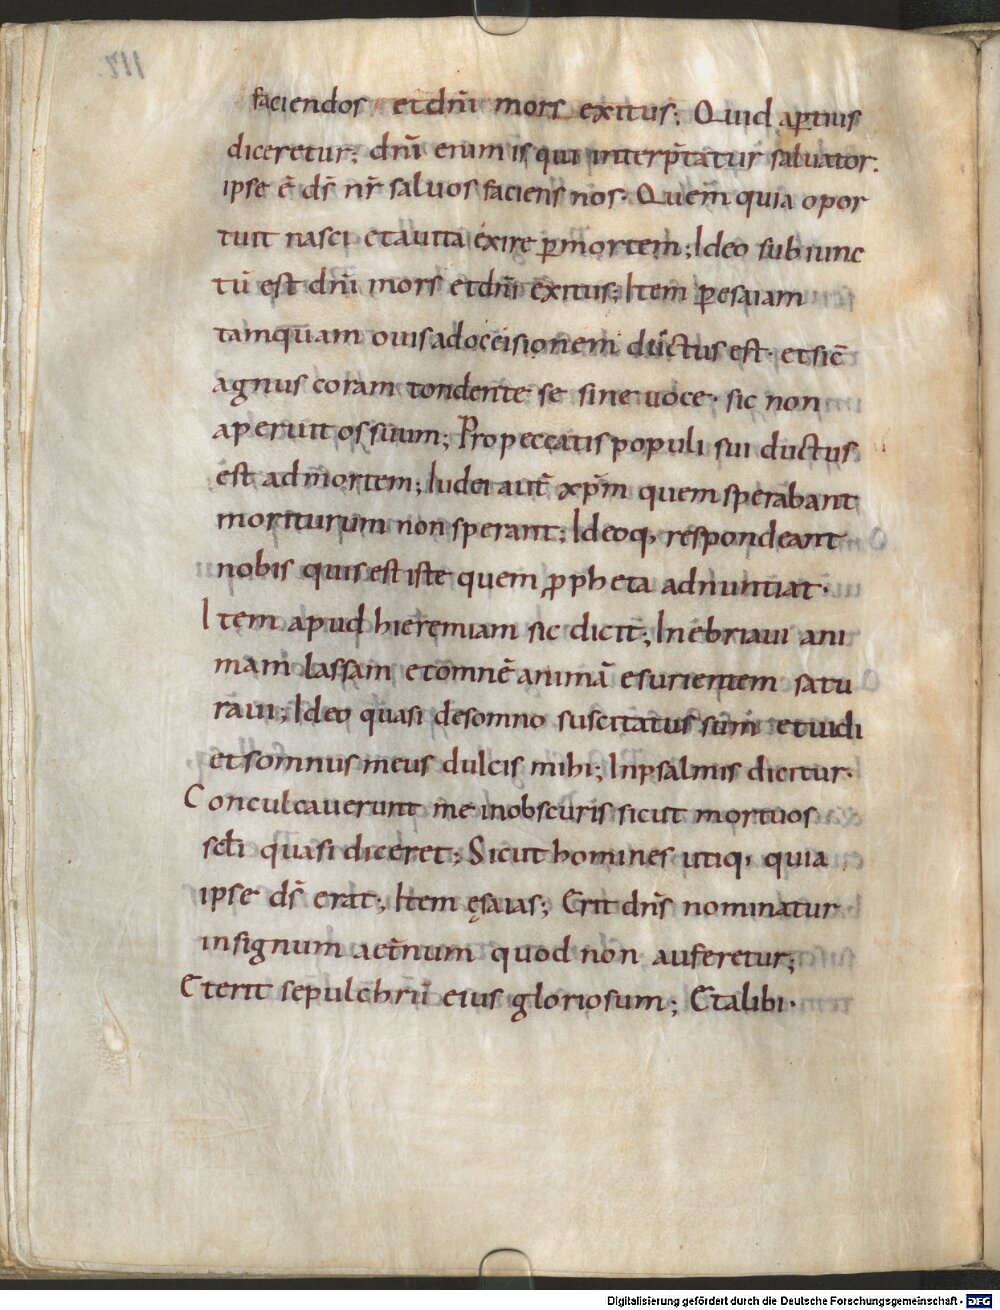 faciendos et dñi mors exitus; Quid aꝑtius
diceretur; dñi enim is qui interp̄tatur saluator.
ipse ē ds̄ nr̄ saluos faciens nos. Quem quia opor
tuit nasci et a uita exire ꝑ mortem; Ideo sub iunc
tū est dñi mors et dñi exitus; Item ꝑ esaiam
tamquam ouis ad occisionem ductus est. et sic̄
agnus coram tondente se sine uoce. sic non
aperuit os suum; Pro peccatis populi sui ductus
est ad mortem; Iudei aut̄ xp̄m quem sperabant
moriturum non sperant; Ideoq, respondeant
nobis quis est iste quem ꝓpheta adnuntiat.
Item apud hieremiam sic dicit; Inebriaui ani
mam lassam et omnē animā esurientem satu
raui; Ideo quasi de somno suscitatus sum et uidi
et somnus meus dulcis mihi; In psalmis dicitur.
Conculcauerunt me in obscuris sicut mortuos
sc̄li quasi diceret; Sicut homines utiq, quia
ipse ds̄ erat; Item ęsaias; Erit dn̄s nominatur
in signum aet̄num quod non auferetur;
Et erit sepulchrū eius gloriosum; Et alibi.
117.
Digitalisierung gefördert durch die Deutsche Forschungsgemeinschaft - DFG